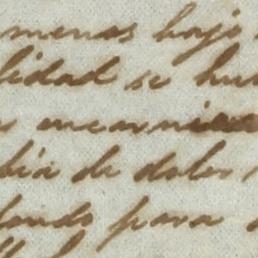 menos bajo
lidad se hu
encarni
bia de dolor
dando para